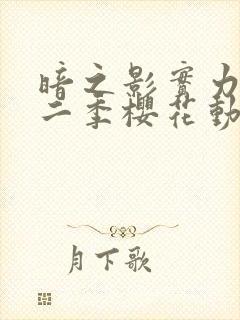 暗之影實力
二季櫻花動
月下歌